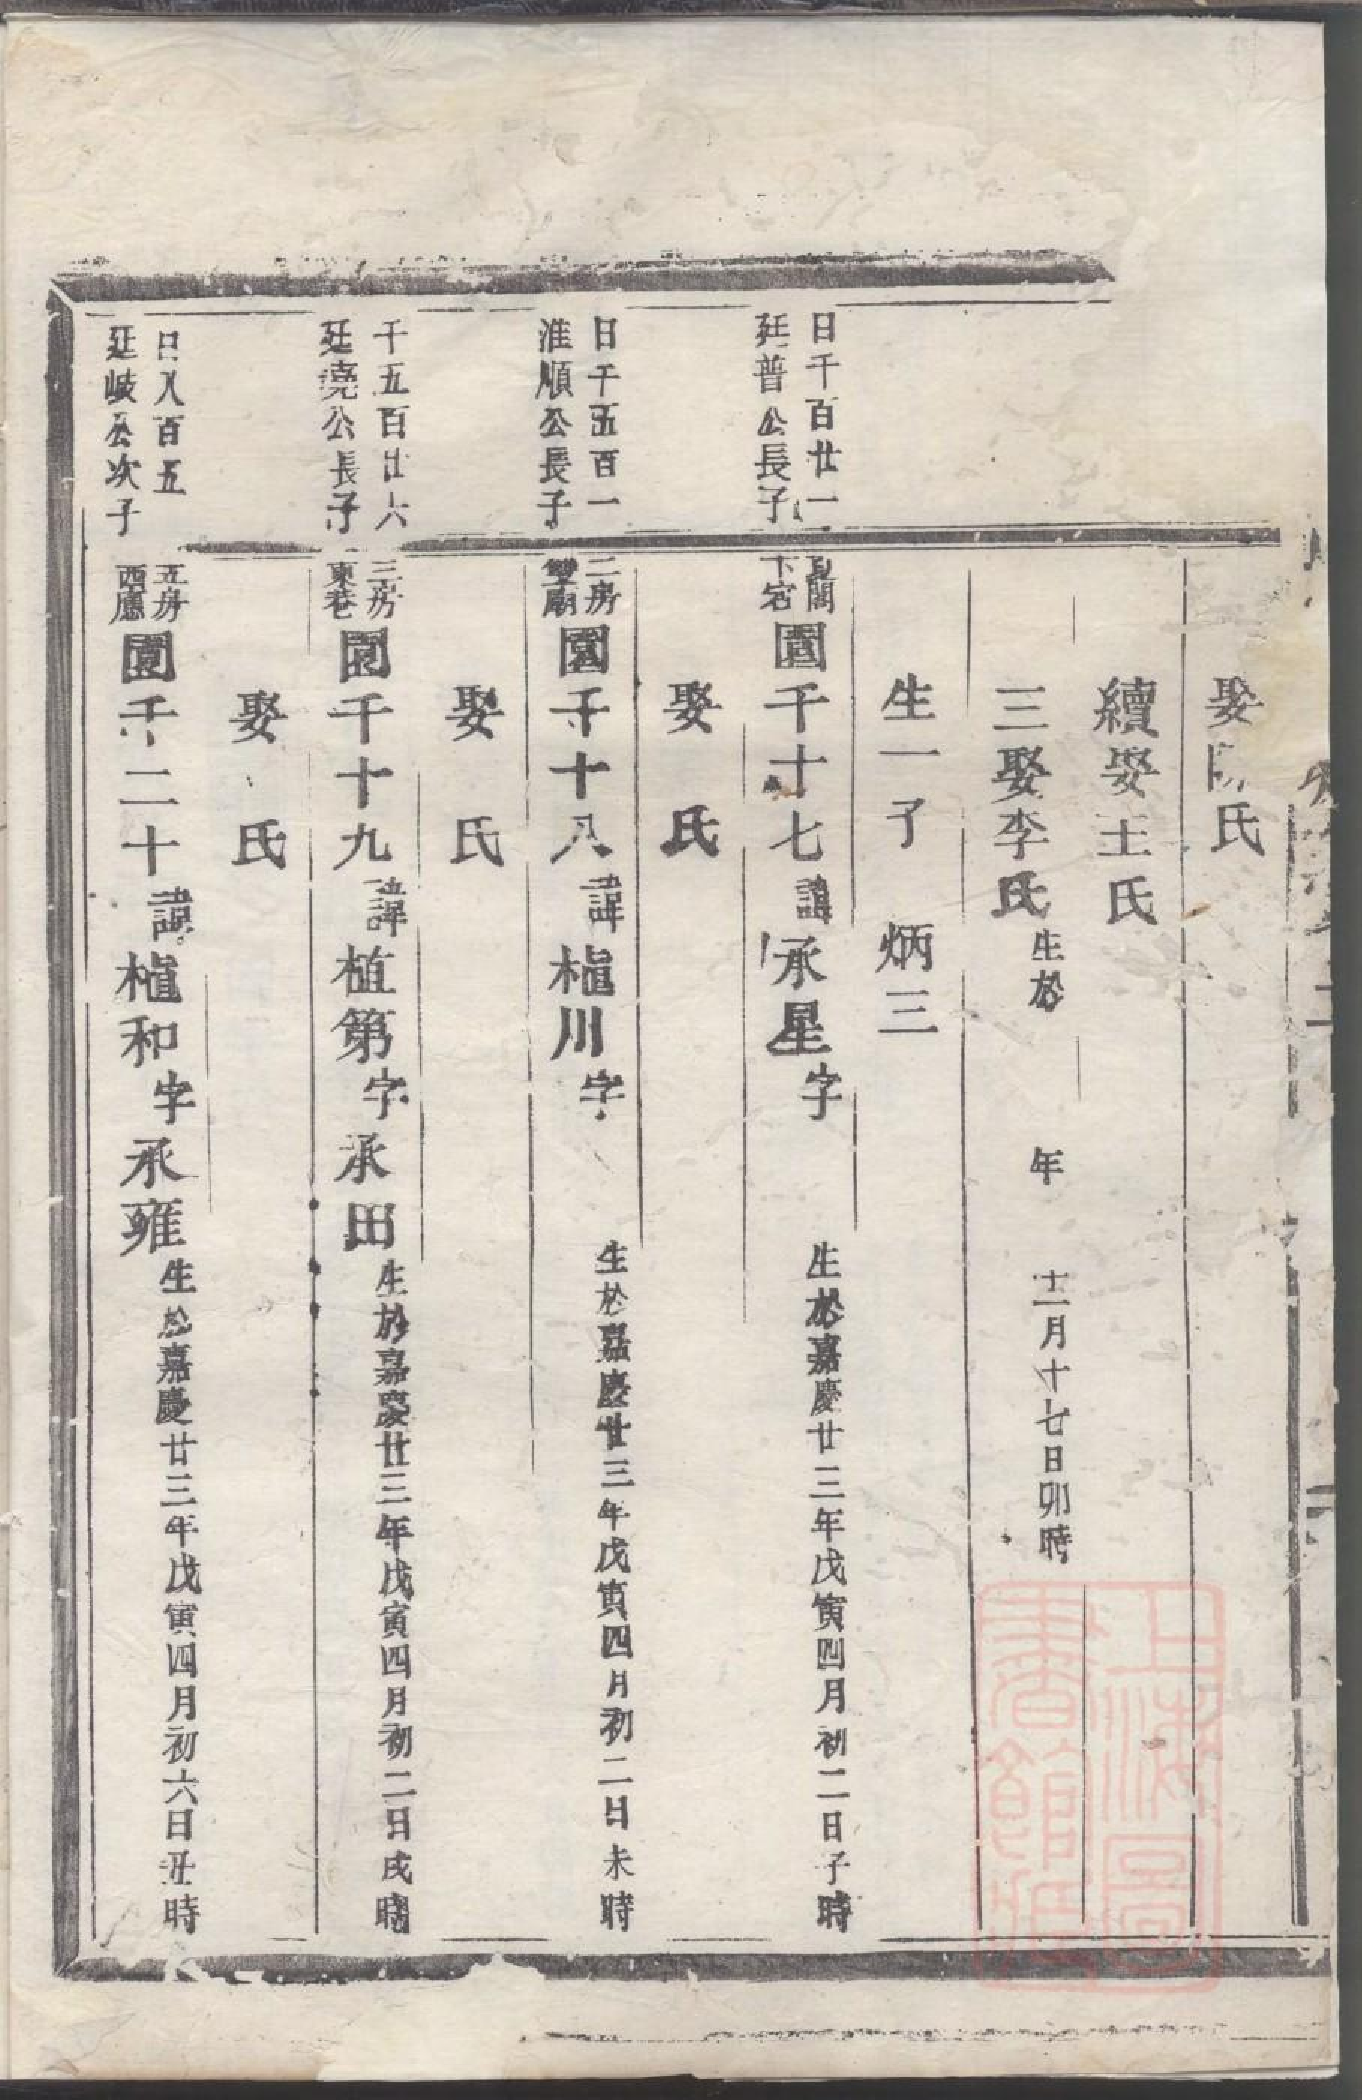 娶 氏
續娶王氏
三娶李氏 生於 年 十二月十七日卯時
生一子 炳三
日千百廿一
廷普公長子
下宅 園千十七 諱 承星 字 生於嘉慶廿三年戊寅四月初二日子時
娶 氏
日千五百一
淮順公長子
二房
雙廟
園千十八 諱 植川 字 生於嘉慶廿三年戊寅四月初二日未時
娶 氏
千五百廿六
廷堯公長子
三房
東巷
園千十九 諱 植第 字 承田 生於嘉慶廿三年戊寅四月初二日戌時
娶 氏
日八百五
廷岐公次子
五房
西廳
園千二十 諱 植和 字 承雍 生於嘉慶廿三年戊寅四月初六日丑時
上海圖書館藏